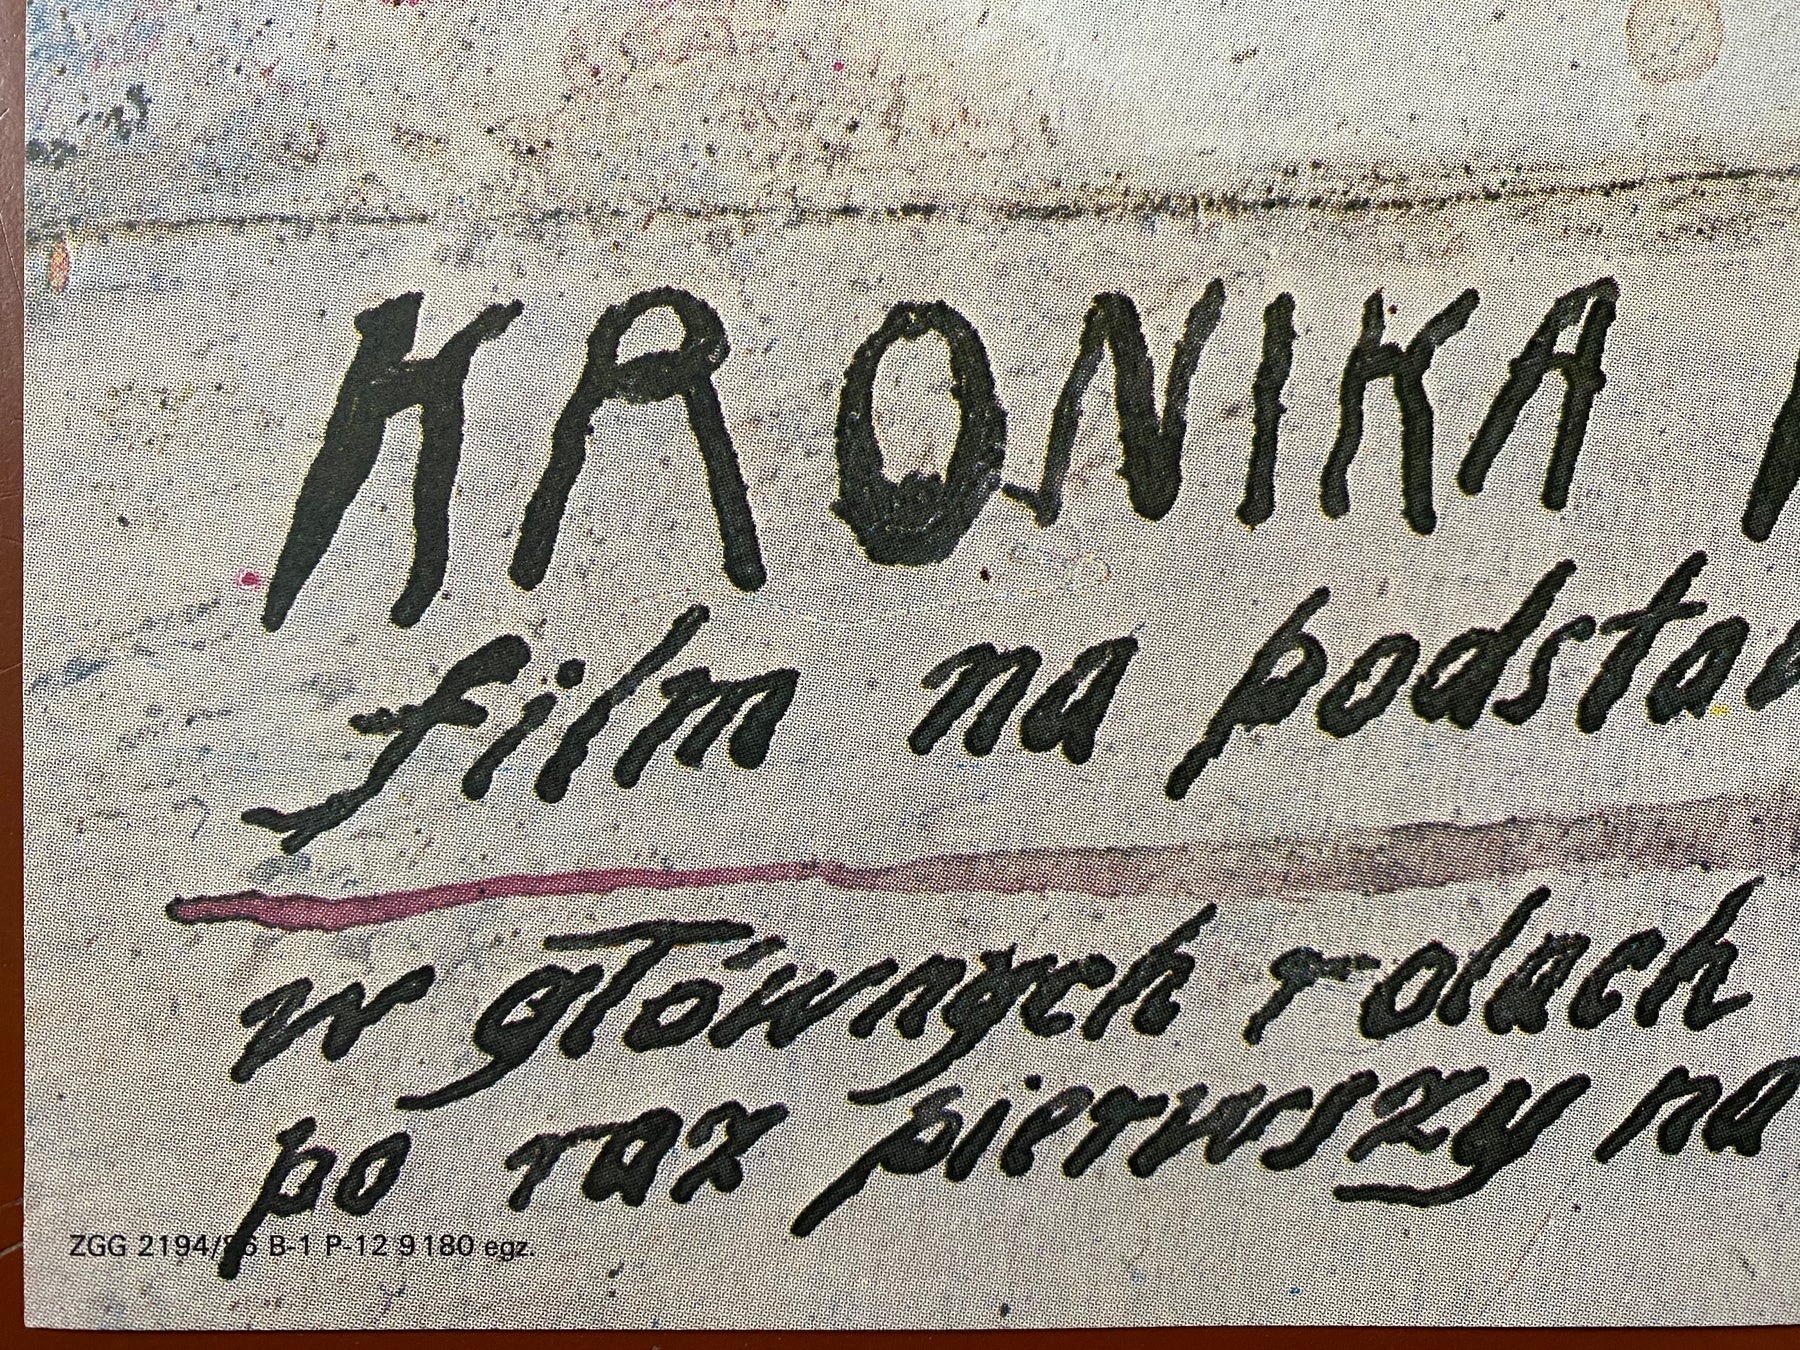 KRONIKA
film na podstaw
w głównych rolach
po raz pierwszy na
ZGG 2194/86 B-1 P-12 9180 egz.